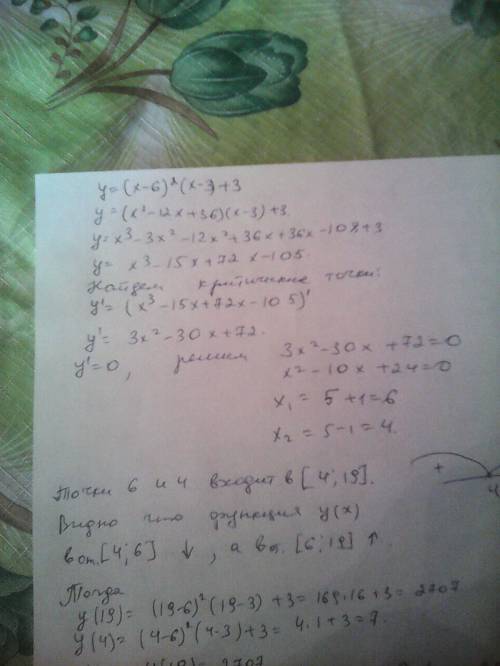 y=(x-6)²(x-3)+3
y=(x²-12x+36)(x-3)+3
y=x³-3x²-12x²+36x+36x-108+3
y= x³-15x+72x-105.
Найдем критичекие точки:
y'=(x³-15x+72x-105)'
y'= 3x²-30x+72.
y'=0, решим 3x²-30x+72=0
x²-10x+24=0
x₁= 5+1=6
x₂=5-1=4.
+
4
Точки 6 и 4 входит в [4;19].
Видно что функция y(x)
в от.[4;6] ↓, а в от. [6;19] ↑.
Тогда
y(19)= (19-6)²(19-3)+3=169.16+3=2707
y(4)= (4-6)²(4-3)+3=4.1+3=7.
y(19)=2707